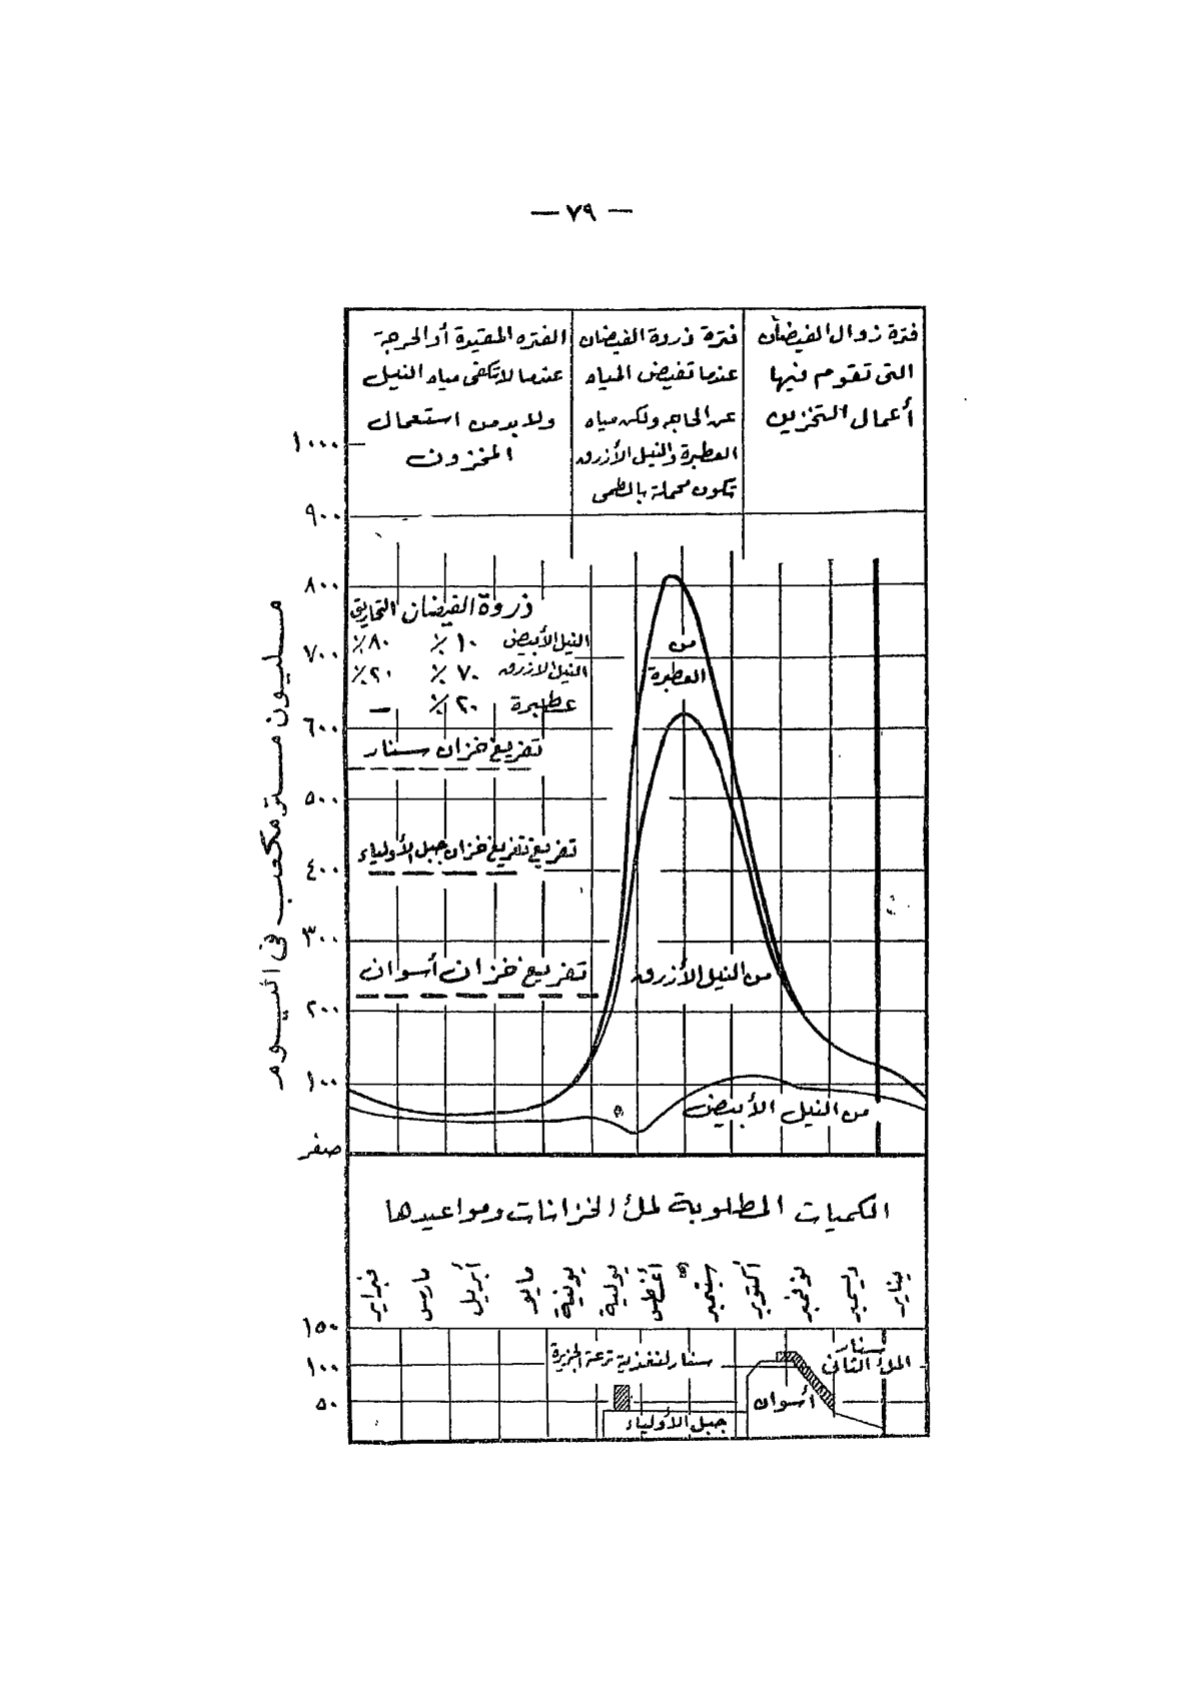 — ٧٩ —
فترة زوال الفيضان
التى تقوم فيها
أعمال التخزين
فترة ذروة الفيضان
عندما تفيض المياه
عن الحاجه ولكن مياه
العطبرة والنيل الأزرق
تكون محملة بالطمى
الفتره المقيدة أو الحرجة
عندما لا تكفى مياه النيل
ولا بد من استعمال
المخزون
مليون متر مكعب فى اليوم
١٠٠٠
٩٠٠
٨٠٠
٧٠٠
٦٠٠
٥٠٠
٤٠٠
٣٠٠
٢٠٠
١٠٠
صفر
ذروة الفيضان التحاريق
النيل الأبيض ١٠ ٪ ٨٠ ٪
النيل الازرق ٧٠ ٪ ٢٠ ٪
عطبرة ٢٠ ٪ —
تفريغ خزان سنار
تفريغ تفريغ خزان جبل الأولياء
تفريغ خزان أسوان
من
العطبرة
من النيل الأزرق
من النيل الأبيض
الكميات المطلوبة لملأ الخزانات ومواعيدها
فبراير
مارس
أبريل
مايو
يونية
يولية
أغسطس
سبتمبر
أكتوبر
نوفمبر
ديسمبر
يناير
١٥٠
١٠٠
٥٠
سنار لتغذية ترعة الجزيرة
جبل الأولياء
أسوان
سنار
الملأ الثانى